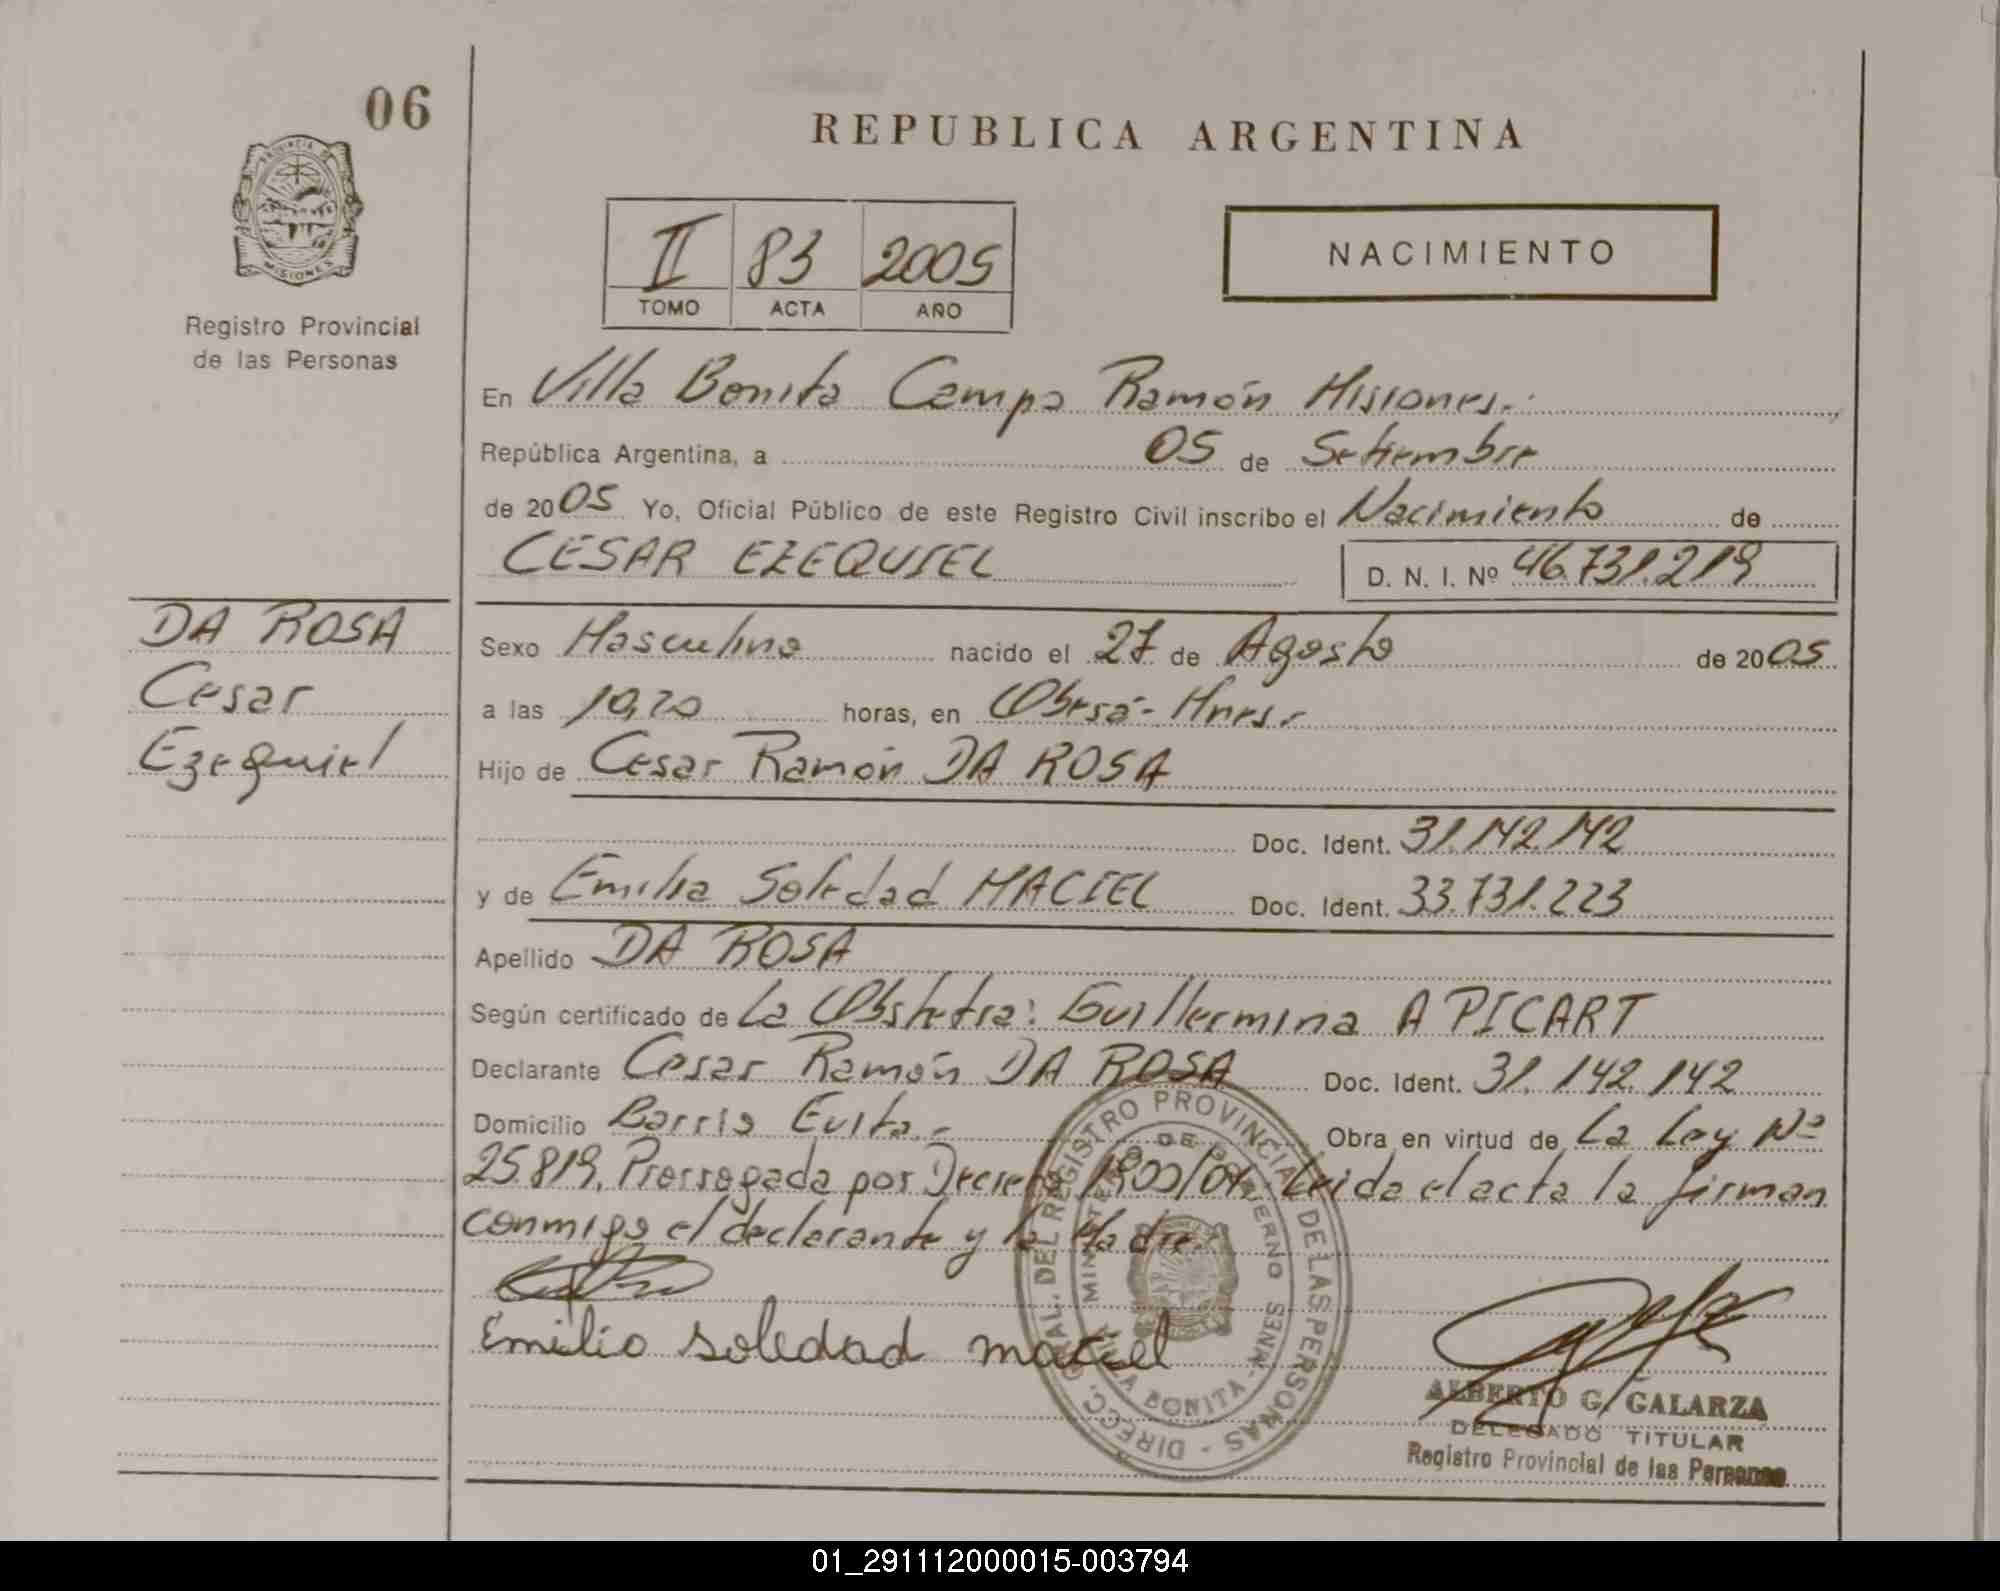 06
REPUBLICA ARGENTINA
PROVINCIA DE
MISIONES
Registro Provincial
de las Personas
II 83 2005
TOMO ACTA AÑO
NACIMIENTO
En Villa Bonita Campo Ramón Misiones.
República Argentina, a 05 de Setiembre
de 2005 Yo, Oficial Público de este Registro Civil inscribo el Nacimiento de
CESAR EZEQUIEL D. N. I. Nº 46.731.219
DA ROSA
Cesar
Ezequiel
Sexo Masculino nacido el 27 de Agosto de 2005
a las 10,20 horas, en Oberá- Mnes.-
Hijo de Cesar Ramón DA ROSA
Doc. Ident. 31.142.142
y de Emilia Soledad MACIEL Doc. Ident. 33.731.223
Apellido DA ROSA
Según certificado de La Obstetra: Guillermina A PICART
Declarante Cesar Ramón DA ROSA Doc. Ident. 31.142.142
Domicilio Barrio Evita.- Obra en virtud de La Ley Nº
25.819, Prorrogada por Decreto 1900/04, Leida el acta la firman
conmigo el declarante y la Madre.
Emilio soledad maciel
DIRECC. GRAL. DEL REGISTRO PROVINCIAL DE LAS PERSONAS -
MINISTERIO DE GOBIERNO
VILLA BONITA - MNES
ALBERTO G. GALARZA
DELEGADO TITULAR
Registro Provincial de las Personas
01_291112000015-003794